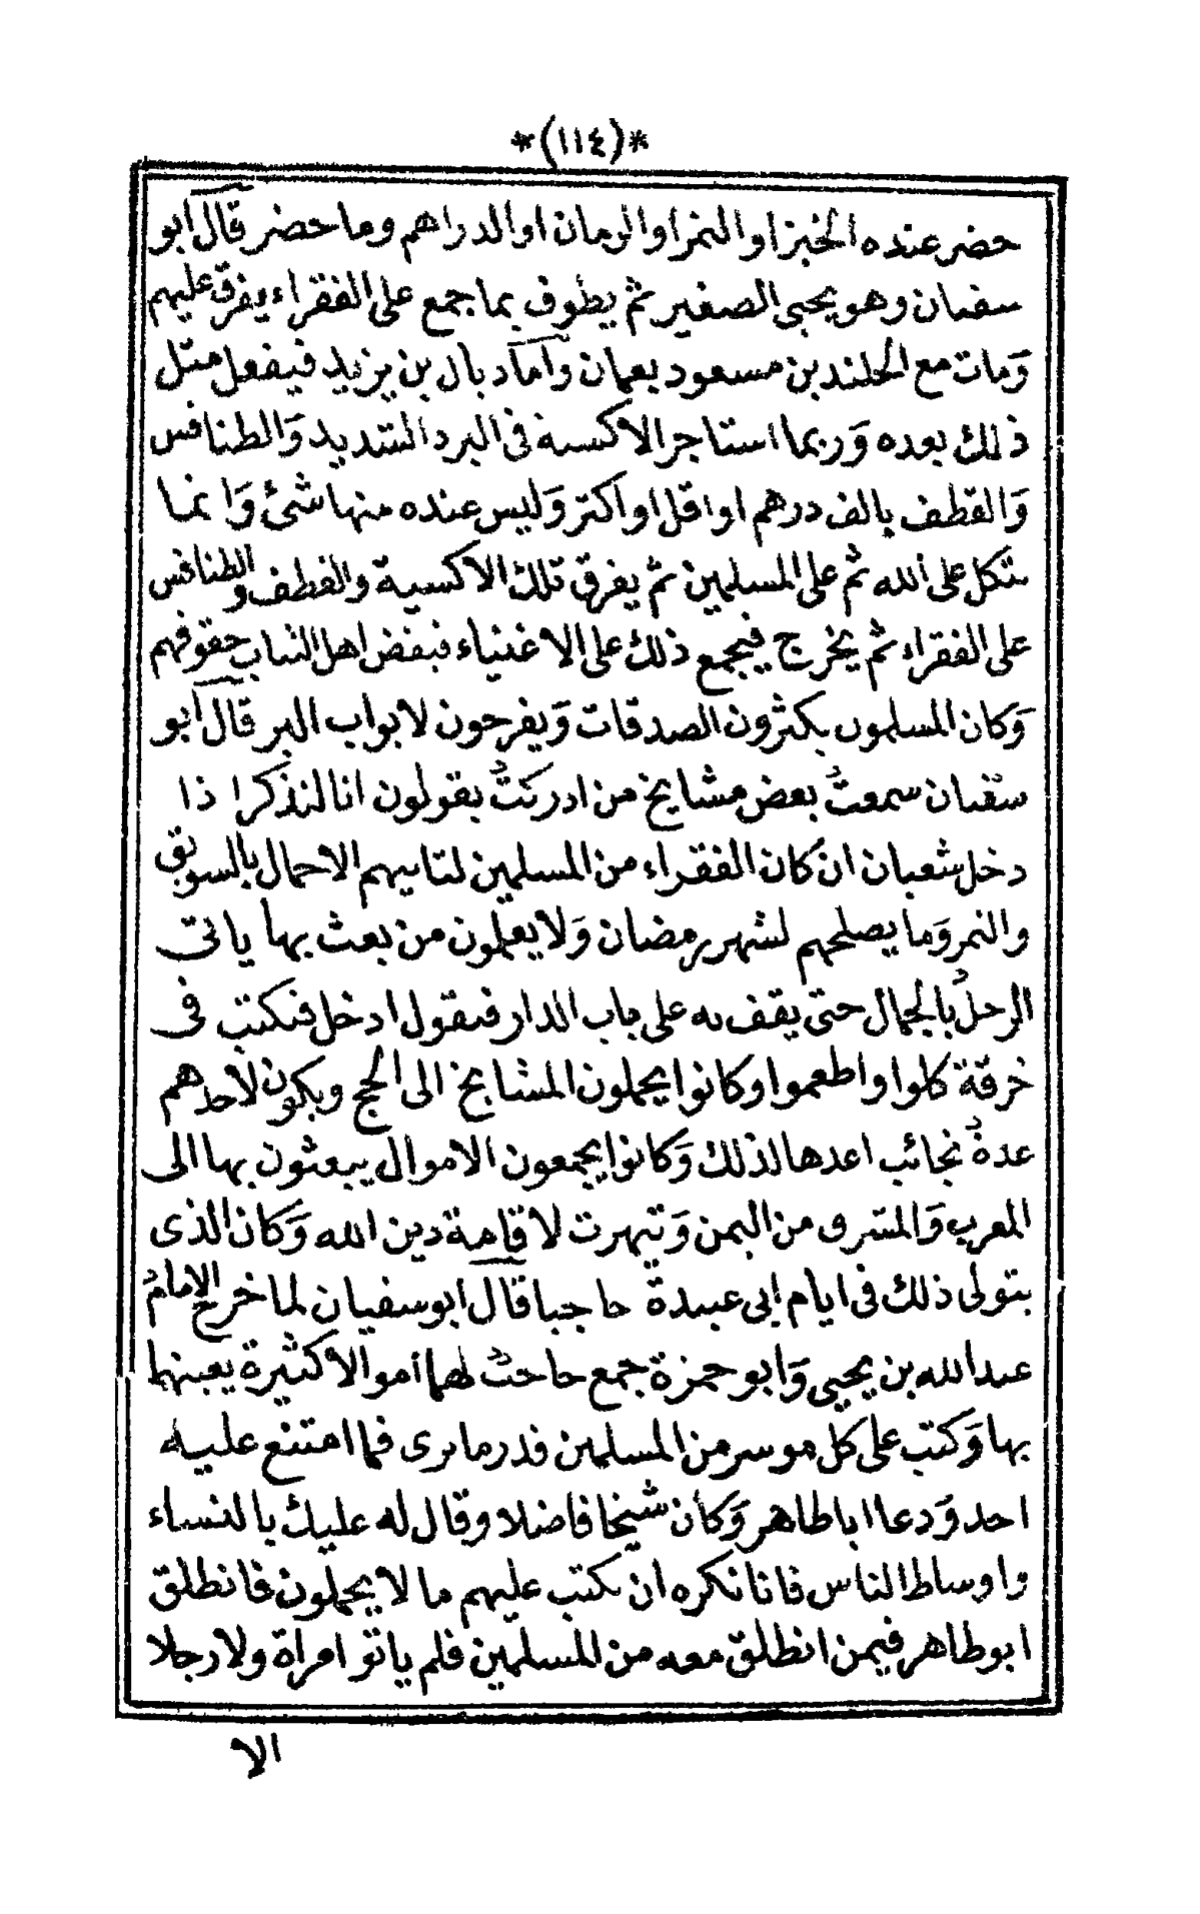 *(١١٤)*
حضر عنده الخبز او التمر او الرمان او الدراهم وما حضر قال ابو
سفيان وهو يحيى الصغير ثم يطوف بما جمع على الفقراء يفرق عليهم
وَمات مع الجلند بن مسعود بعمان وَاما دبال بن يزيد فيفعل مثل
ذلك بعده وَربما استاجر الاكسية فى البرد الشديد وَالطنافس
وَالقطف بالف درهم او اقل او اكثر وَليس عنده منها شئ وَانما
يتكل على الله ثم على المسلمين ثم يفرق تلك الاكسية والقطف والطنافس
على الفقراء ثم يخرج فيجمع ذلك على الاغنياء فبفض اهل الثياب حقوقهم
وَكان المسلمون يكثرون الصدقات وَيفرحون لابواب البر قال ابو
سفيان سمعتُ بعض مشايخ من ادركتُ يقولون انا لنذكر اذا
دخل شعبان ان كان الفقراء من المسلمين لتاتيهم الاحمال بالسويق
والتمر وَما يصلحهم لشهر رمضان وَلا يعلمون من بعث بها ياتى
الرجلُ بالجمال حتى يقف به على باب الدار فيقول ادخل فيكتب فى
خرقة كلوا واطعموا وكانوا يحملون المشايخ الى الحج ويكون لاحدهم
عدةُ نجائب اعدها لذلك وَكانوا يجمعون الاموال يبعثون بها الى
المغرب وَالمشرق من اليمن وَتيهرت لاقامة دين الله وَكان الذى
يتولى ذلك فى ايام ابى عبيدة حاجبا قال ابو سفيان لما خرج الامامُ
عبد الله بن يحيى وَابو حمزة جمع حاجبُ لهما أموالا كثيرة يعينهما
بها وَكتب على كل موسر من المسلمين قدر ما يرى فما امتنع عليه
احد وَدعا ابا طاهر وَكان شيخا فاضلا وقال له عليك بالنساء
واوساط الناس فانا نكره ان نكتب عليهم ما لا يحملون فانطلق
ابو طاهر فيمن انطلق معه من المسلمين فلم ياتو امراة ولا رجلا
الا